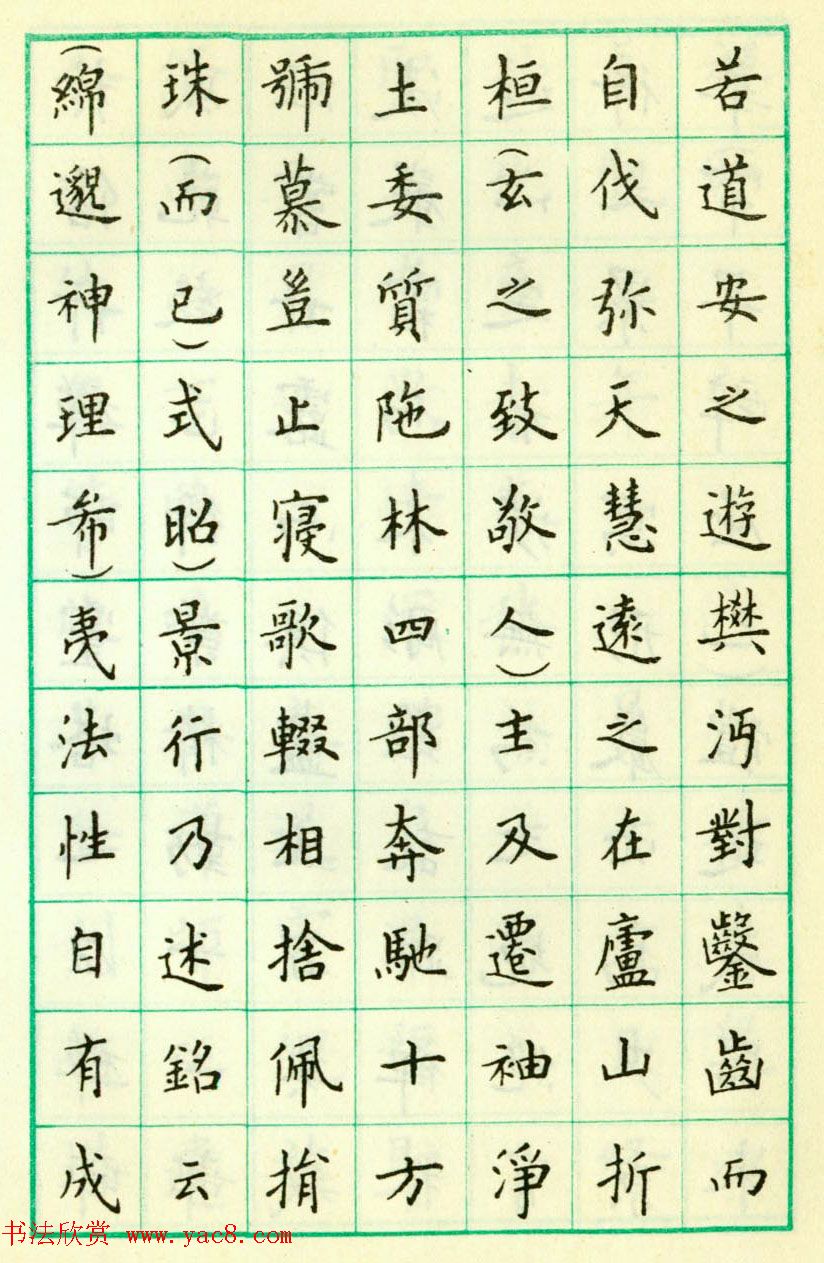 若道安之遊樊沔對鑿齒而
自伐弥天慧遠之在廬山折
桓(玄之致敬人)主及遷袖淨
土委質陁林四部奔馳十方
號慕豈止寢歌輟相捨佩捐
珠(而已)式昭)景行乃述銘云
(綿邈神理希)夷法性自有成
书法欣赏 www.yac8.com